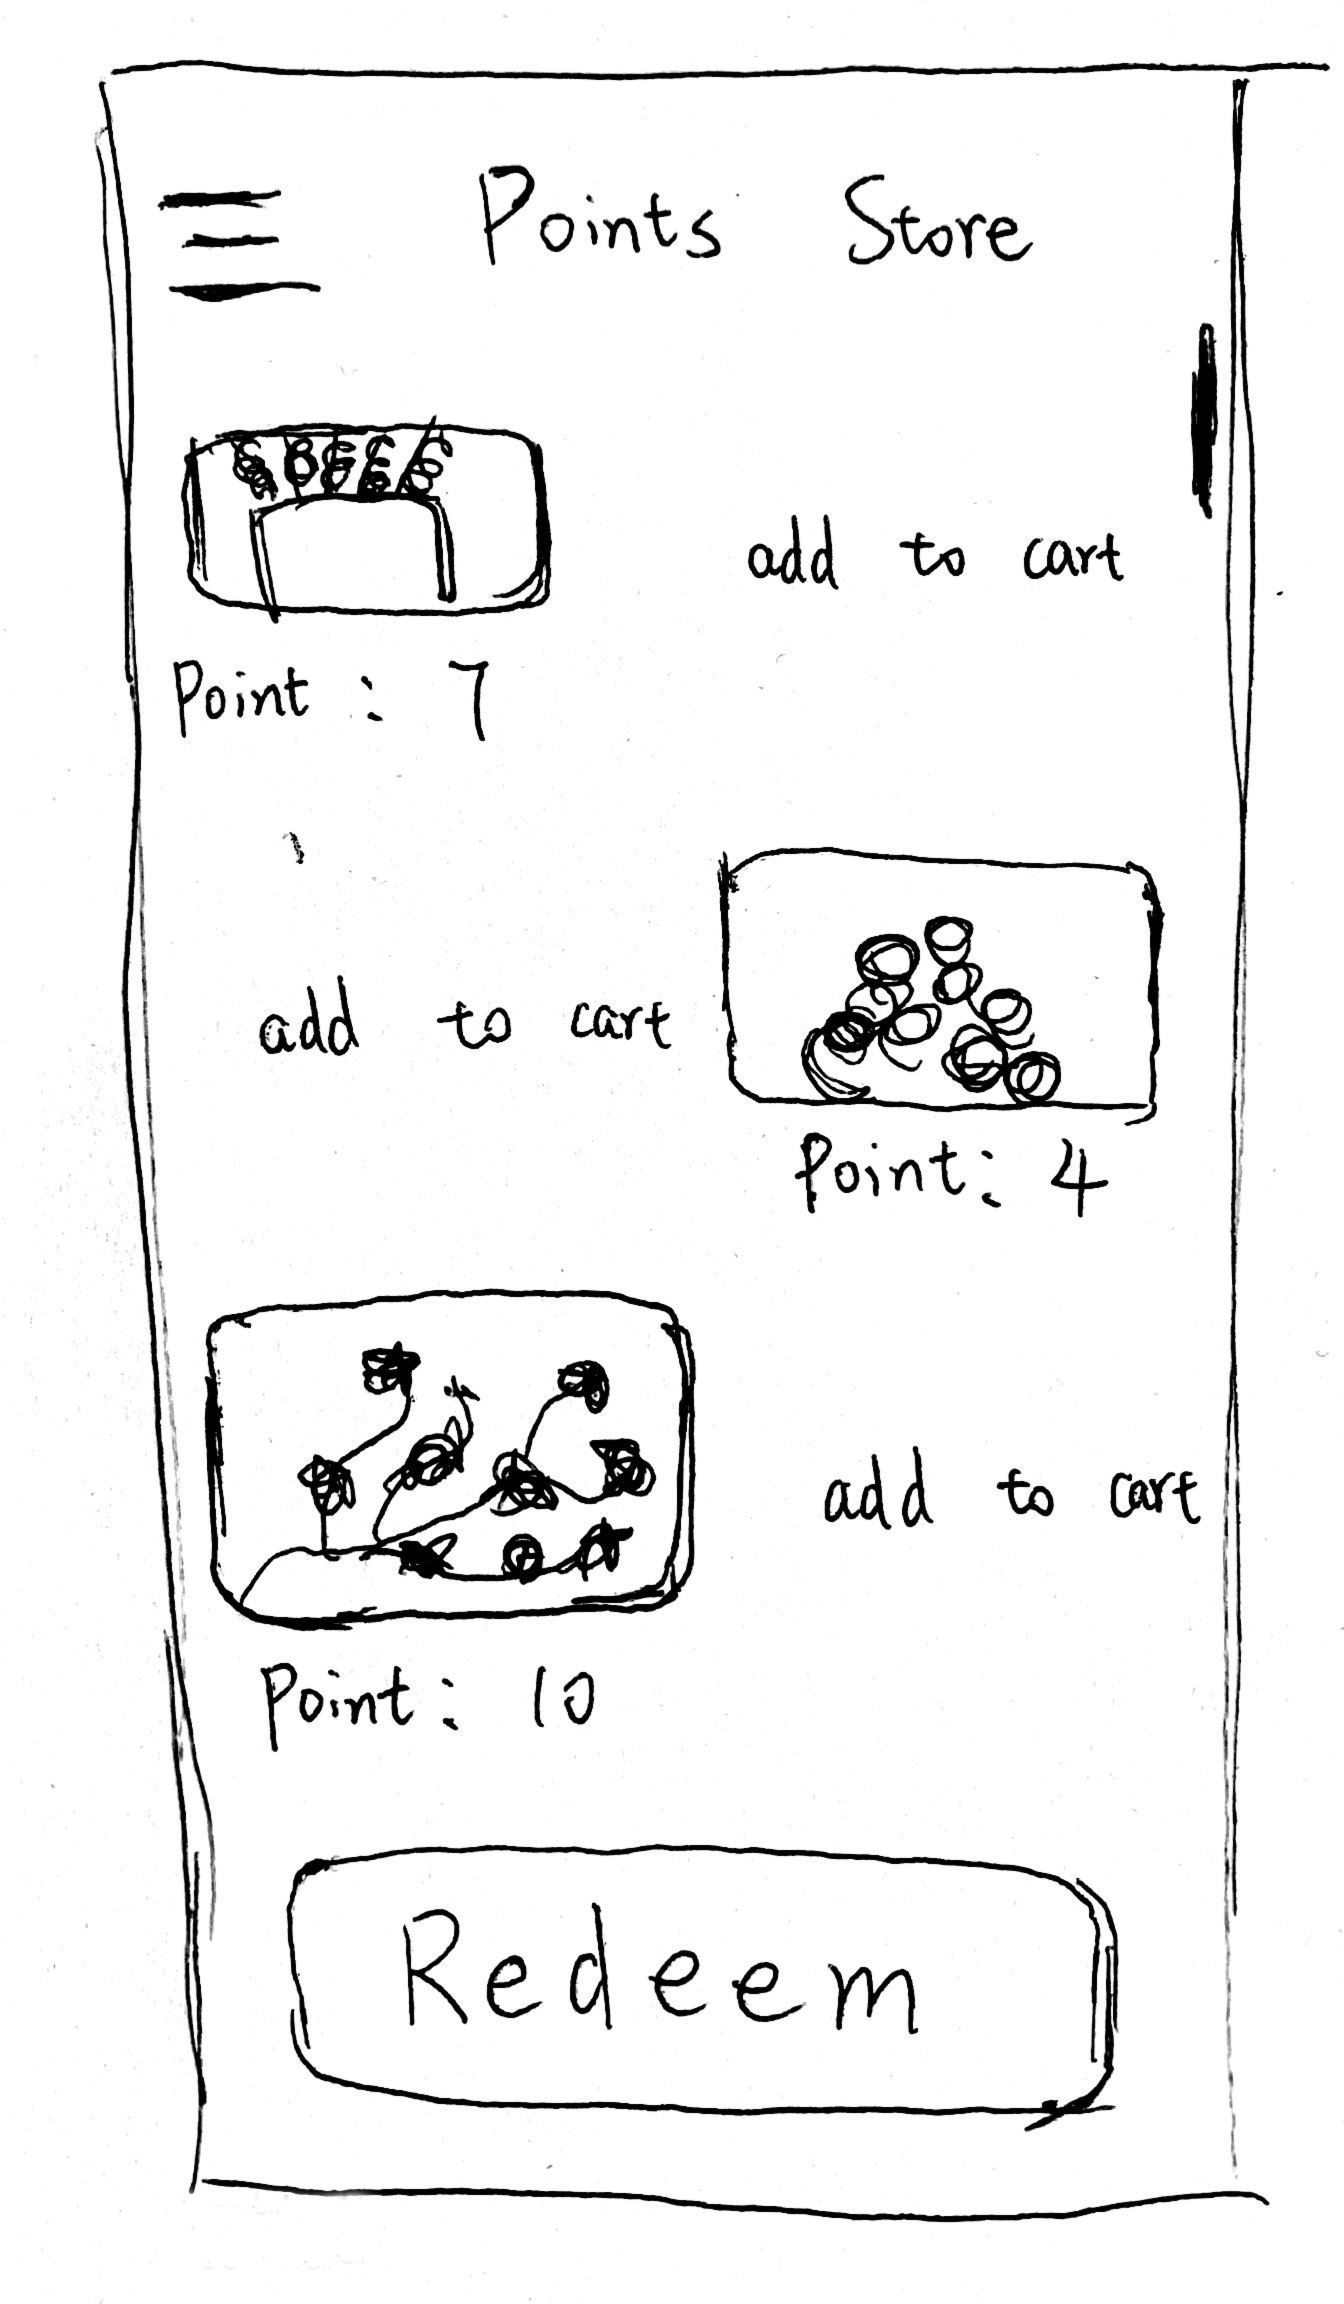 Points Store
add to cart
Point : 7
add to cart
Point: 4
add to cart
Point: 10
Redeem